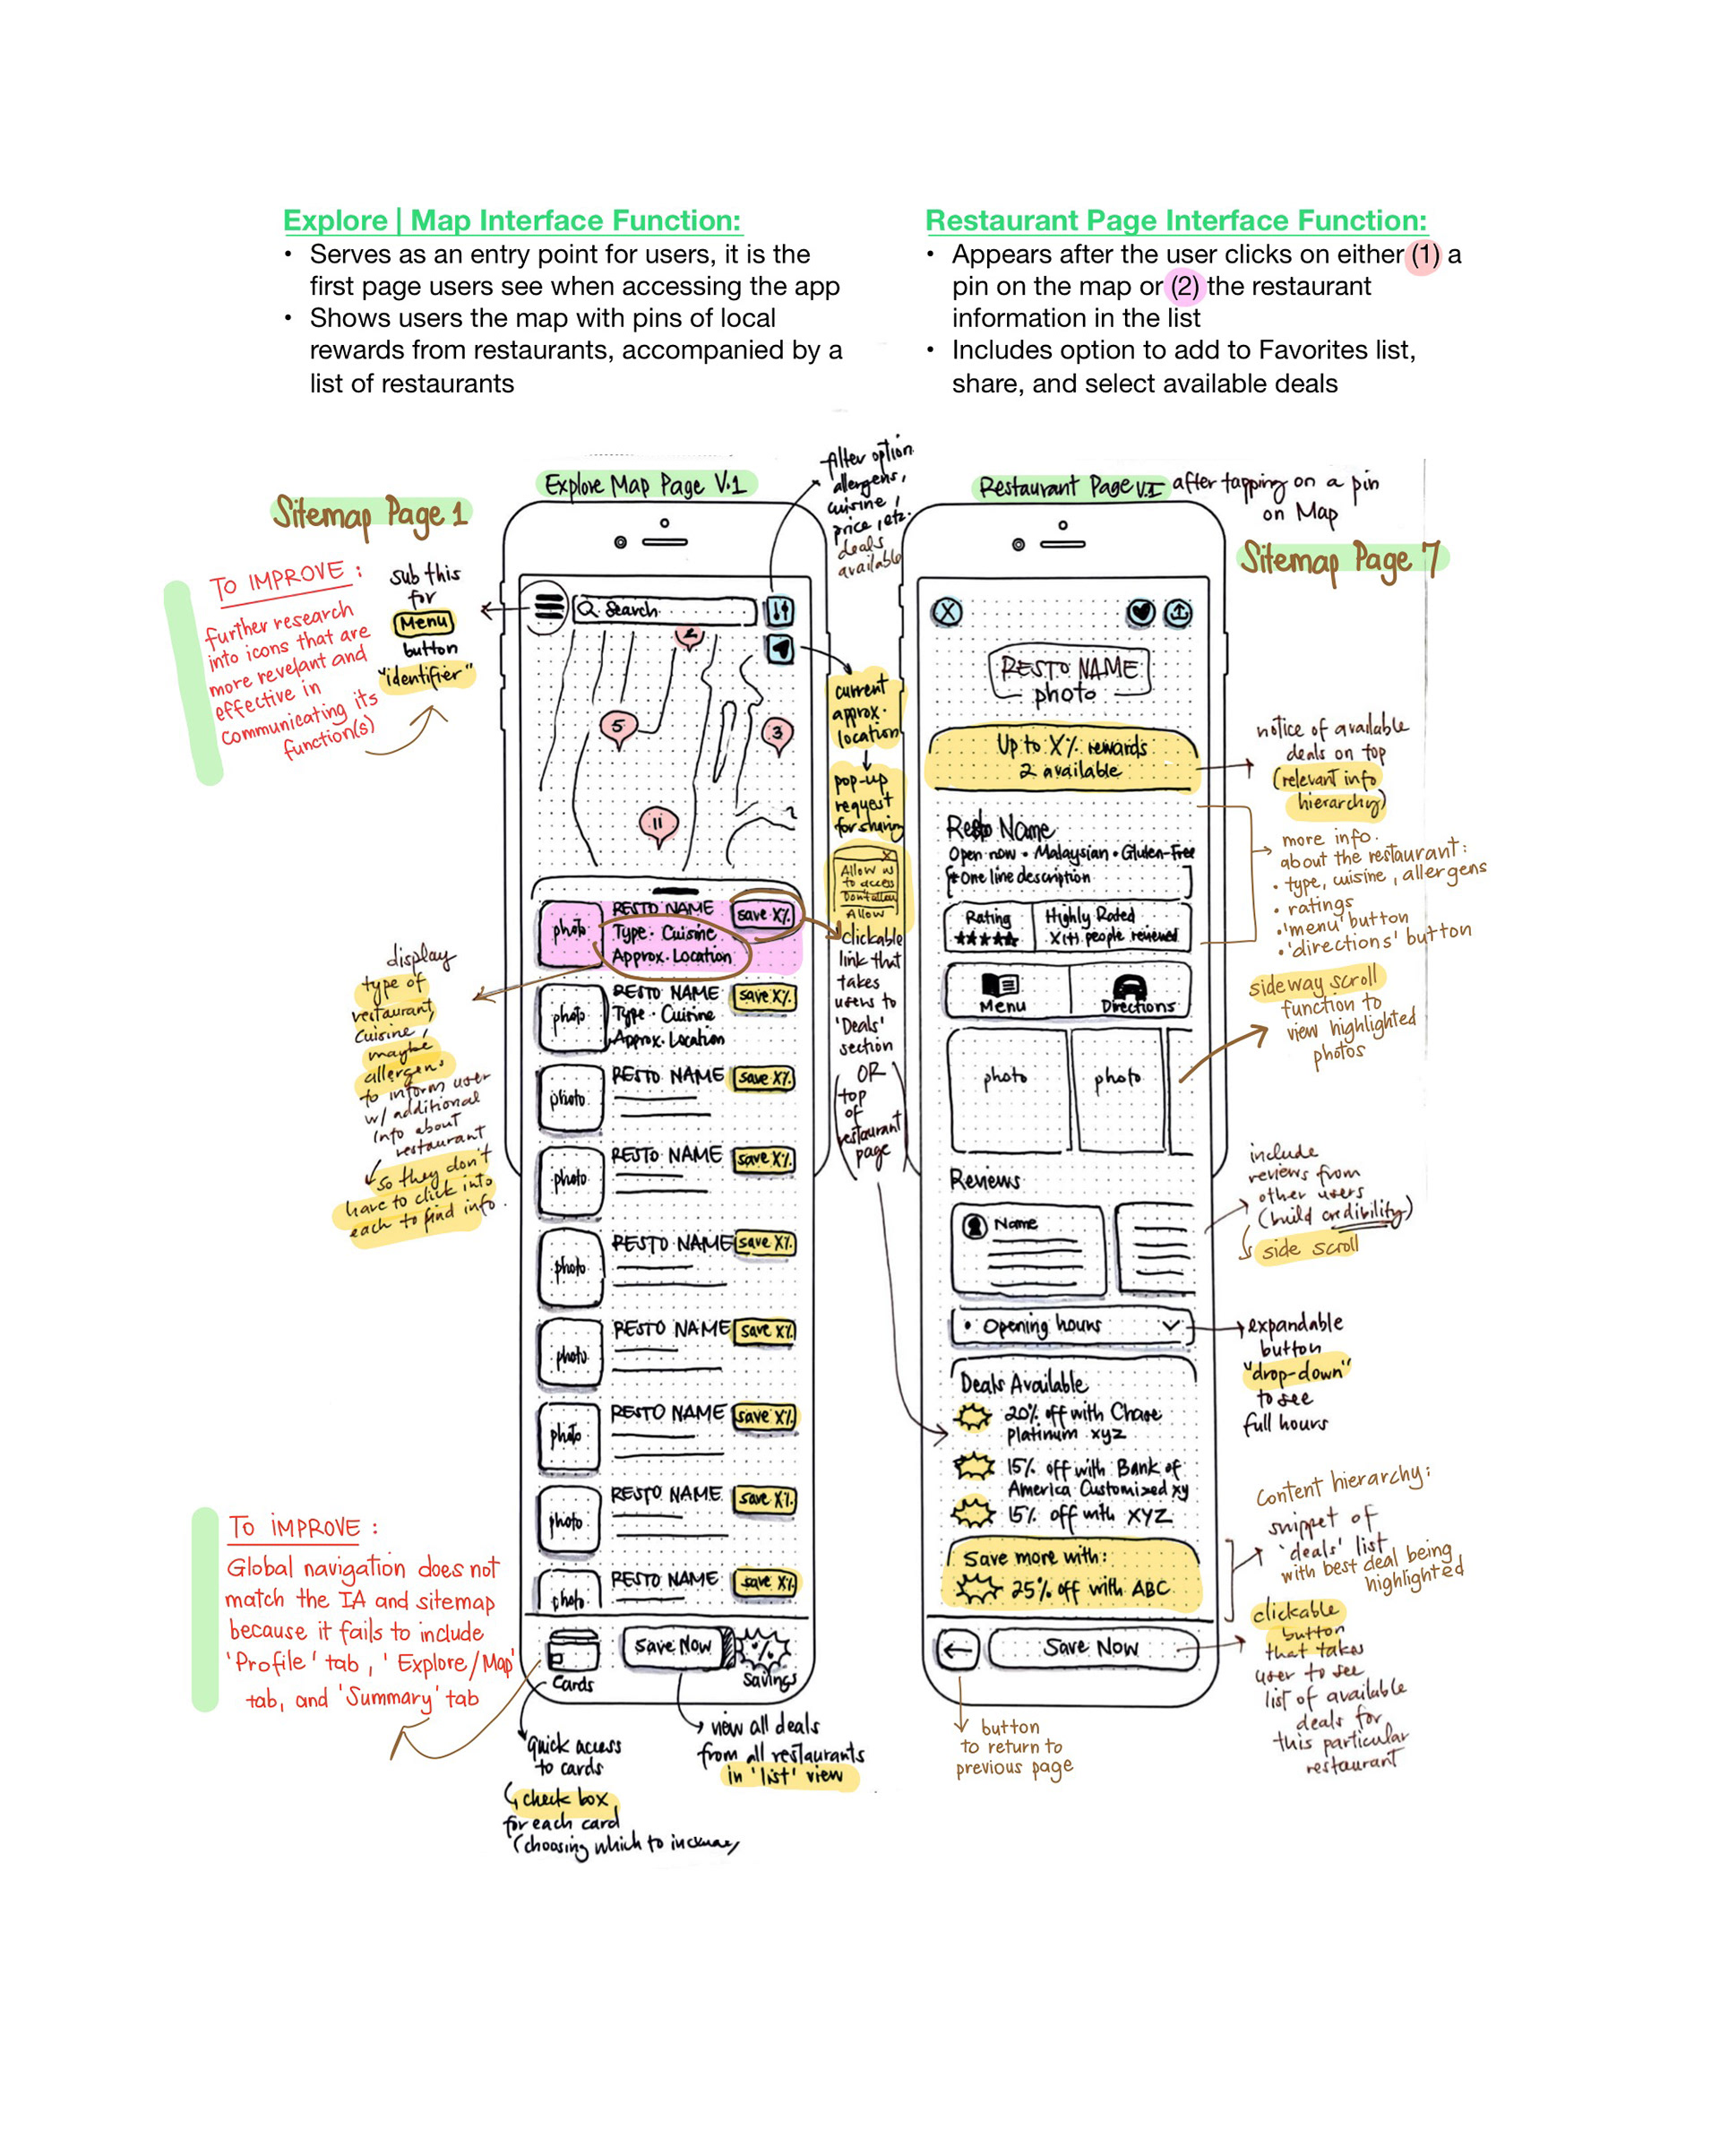 Explore | Map Interface Function:
• Serves as an entry point for users, it is the
first page users see when accessing the app
• Shows users the map with pins of local
rewards from restaurants, accompanied by a
list of restaurants
Restaurant Page Interface Function:
• Appears after the user clicks on either (1) a
pin on the map or (2) the restaurant
information in the list
• Includes option to add to Favorites list,
share, and select available deals
Sitemap Page 1
Explore Map Page V.1
TO IMPROVE:
further research
into icons that are
more revelant and
effective in
communicating its
function(s)
sub this
for
Menu
button
"identifier"
Search
filter option
allergens,
cuisine,
price, etc.
deals
available
2
5
3
11
current
approx.
location
pop-up
request
for sharing
X
Allow us
to access
Don't allow
Allow
clickable
link that
takes
users to
'Deals'
section
OR
(top
of
restaurant
page)
photo
RESTO NAME
save X%
Type · Cuisine
Approx. Location
photo
RESTO NAME
save X%
Type · Cuisine
Approx. Location
photo
RESTO NAME
save X%
photo
RESTO NAME
save X%
photo
RESTO NAME
save X%
photo
RESTO NAME
save X%
photo
RESTO NAME
save X%
photo
RESTO NAME
save X%
photo
RESTO NAME
save X%
display
type of
restaurant,
cuisine,
maybe
allergens
to inform user
w/ additional
info about
restaurant
so they don't
have to click into
each to find info.
TO IMPROVE:
Global navigation does not
match the IA and sitemap
because it fails to include
'Profile' tab, 'Explore/Map'
tab, and 'Summary' tab
Cards
Save Now
%
Savings
quick access
to cards
check box
for each card
(choosing which to
view all deals
from all restaurants
in 'list' view
Restaurant Page V.1 after tapping on a pin
on Map
Sitemap Page 7
X
RESTO NAME
photo
Up to X% rewards
2 available
notice of available
deals on top
(relevant info
hierarchy)
Resto Name
Open now · Malaysian · Gluten-Free
* One line description
Rating
★★★★★
Highly Rated
X(t) people reviewed
more info.
about the restaurant:
• type, cuisine, allergens
• ratings
• 'menu' button
• 'directions' button
Menu
Directions
sideway scroll
function to
view highlighted
photos
photo
photo
Reviews
Name
include
reviews from
other users
(build credibility)
side scroll
• Opening hours
expandable
button
"drop-down"
to see
full hours
Deals Available
20% off with Chase
platinum xyz
15% off with Bank of
America Customized xy
15% off with XYZ
Save more with:
25% off with ABC
Content hierarchy:
snippet of
'deals' list
with best deal being
highlighted
Save Now
clickable
button
that takes
user to see
list of available
deals for
this particular
restaurant
button
to return to
previous page